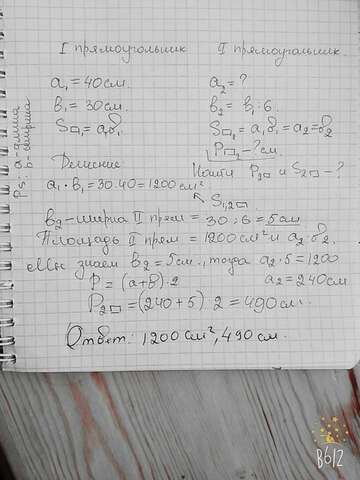 I прямоугольник II прямоугольник.
a₁ = 40 см. a₂ = ?
в₁ = 30 см. в₂ = в₁ : 6
S□₁ = a₁в₁ S□₂ = a₁в₁ = a₂ = в₂
P□₂ - ? см.
Ps: a-длина
в-ширина
Решение Найти P₂□ и S₂□ - ?
a₁ · в₁ = 30 · 40 = 1200 см²
S₁,₂□
в₂ - ширина II прям = 30 : 6 = 5 см
Площадь II прям = 1200 см² и a₂ · в₂.
Мы знаем в₂ = 5 см., тогда a₂ · 5 = 1200
P = (a+в) · 2 a₂ = 240 см
P₂□ = (240 + 5) · 2 = 490 см.
Ответ: 1200 см², 490 см.
B612